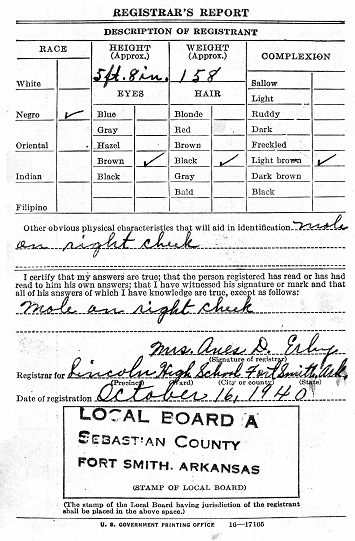 REGISTRAR'S REPORT
DESCRIPTION OF REGISTRANT
RACE HEIGHT (Approx.) WEIGHT (Approx.) COMPLEXION
5 ft. 8 in. 158
White Sallow
EYES HAIR Light
Negro ✓ Blue Blonde Ruddy
Gray Red Dark
Oriental Hazel Brown Freckled
Brown ✓ Black ✓ Light brown ✓
Indian Black Gray Dark brown
Bald Black
Filipino
Other obvious physical characteristics that will aid in identification mole
on right cheek
I certify that my answers are true; that the person registered has read or has had
read to him his own answers; that I have witnessed his signature or mark and that
all of his answers of which I have knowledge are true, except as follows:
Mole on right cheek
Mrs. D. Erby
(Signature of registrar)
Registrar for Lincoln High School Fort Smith, Ark.
(Precinct) (Ward) (City or county) (State)
Date of registration October 16, 1940
LOCAL BOARD A
SEBASTIAN COUNTY
FORT SMITH, ARKANSAS
(STAMP OF LOCAL BOARD)
(The stamp of the Local Board having jurisdiction of the registrant
shall be placed in the above space.)
U. S. GOVERNMENT PRINTING OFFICE 16—17105